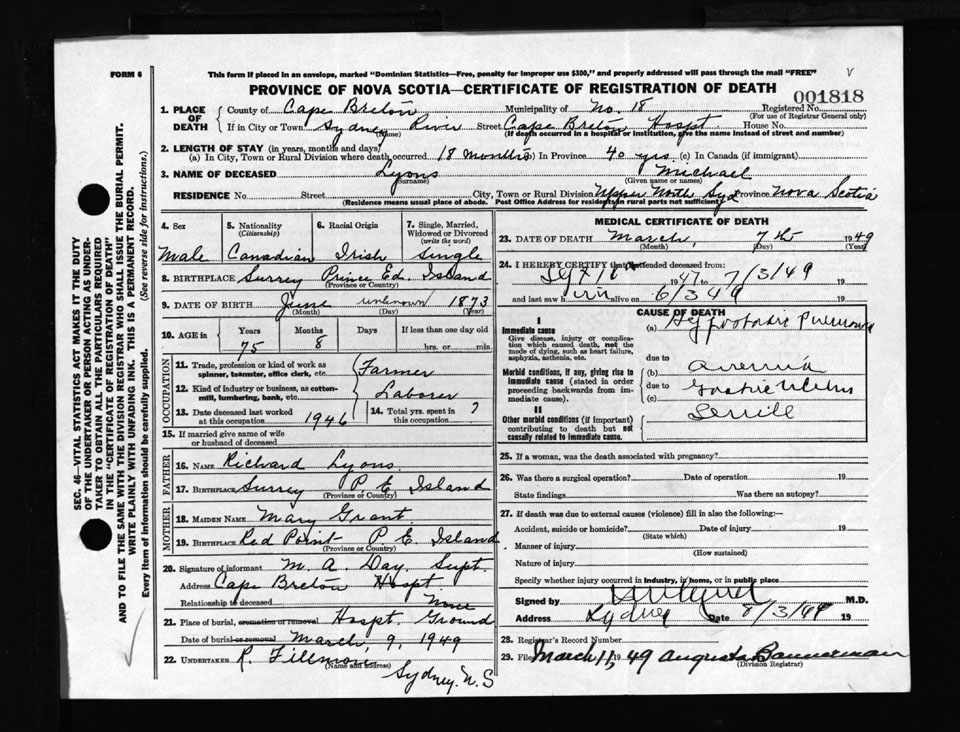 FORM 6
This form if placed in an envelope, marked "Dominion Statistics—Free, penalty for improper use $300," and properly addressed will pass through the mail "FREE"
PROVINCE OF NOVA SCOTIA—CERTIFICATE OF REGISTRATION OF DEATH
001818
1. PLACE OF DEATH
County of Cape Breton Municipality of No. 18 Registered No.
(For use of Registrar General only)
If in City or Town Sydney River Street Cape Breton Hospt House No.
(Name) (If death occurred in a hospital or institution, give the name instead of street and number)
2. LENGTH OF STAY (in years, months and days)
(a) In City, Town or Rural Division where death occurred 18 months (b) In Province 40 yrs. (c) In Canada (if immigrant)
3. NAME OF DECEASED Lyons Michael
(Surname) (Given name or names)
RESIDENCE No. Street City, Town or Rural Division Upper North Syd Province Nova Scotia
(Residence means usual place of abode. Post Office Address for residents in rural parts not sufficient)
4. Sex Male
5. Nationality (Citizenship) Canadian
6. Racial Origin Irish
7. Single, Married, Widowed or Divorced (write the word) Single
8. BIRTHPLACE Surrey Prince Ed. Island
(Province or Country)
9. DATE OF BIRTH June unknown 1873
(Month) (Day) (Year)
10. AGE in Years Months Days If less than one day old
75 8 hrs. or min.
OCCUPATION
11. Trade, profession or kind of work as spinner, teamster, office clerk, etc. Farmer
12. Kind of industry or business, as cotton-mill, lumbering, bank, etc. Laborer
13. Date deceased last worked at this occupation 1946
14. Total yrs. spent in this occupation ?
15. If married give name of wife or husband of deceased
FATHER
16. NAME Richard Lyons.
17. BIRTHPLACE Surrey P E Island
(Province or Country)
MOTHER
18. MAIDEN NAME Mary Grant
19. BIRTHPLACE Red Point P. E. Island
(Province or Country)
20. Signature of informant M. A. Day, Supt.
Address Cape Breton Hospt.
Relationship to deceased None
21. Place of burial, cremation or removal Hospt. Ground
Date of burial or removal March, 9, 1949
22. UNDERTAKER R. Fillmore
(Name and address)
Sydney. N. S
MEDICAL CERTIFICATE OF DEATH
23. DATE OF DEATH March, 7th 1949
(Month) (Day)
24. I HEREBY CERTIFY that I attended deceased from:
1947 to 7/3/49
and last saw him alive on 6/3 49 19
CAUSE OF DEATH
I
Immediate cause
Give disease, injury or complication which caused death, not the mode of dying, such as heart failure, asphyxia, asthenia, etc.
(a) Hypostatic Pneumonia
due to
Morbid conditions, if any, giving rise to immediate cause (stated in order proceeding backwards from immediate cause).
(b) Anemia
due to
(c) Gastric Ulcers
II
Other morbid conditions (if important) contributing to death but not causally related to immediate cause.
25. If a woman, was the death associated with pregnancy?
26. Was there a surgical operation? Date of operation 19
State findings Was there an autopsy?
27. If death was due to external causes (violence) fill in also the following:—
Accident, suicide or homicide? Date of injury 19
(State which)
Manner of injury
(How sustained)
Nature of injury
Specify whether injury occurred in industry, in home, or in public place
Signed by M.D.
Address Sydney Date 8/3/49 19
28. Registrar's Record Number
29. Filed March 11, 1949 Augusta Bannerman
(Division Registrar)
SEC. 46—VITAL STATISTICS ACT MAKES IT THE DUTY
OF THE UNDERTAKER OR PERSON ACTING AS UNDER-
TAKER TO OBTAIN ALL THE PARTICULARS REQUIRED
IN THE "CERTIFICATE OF REGISTRATION OF DEATH"
AND TO FILE THE SAME WITH THE DIVISION REGISTRAR WHO SHALL ISSUE THE BURIAL PERMIT.
WRITE PLAINLY WITH UNFADING INK. THIS IS A PERMANENT RECORD.
Every item of information should be carefully supplied. (See reverse side for instructions.)